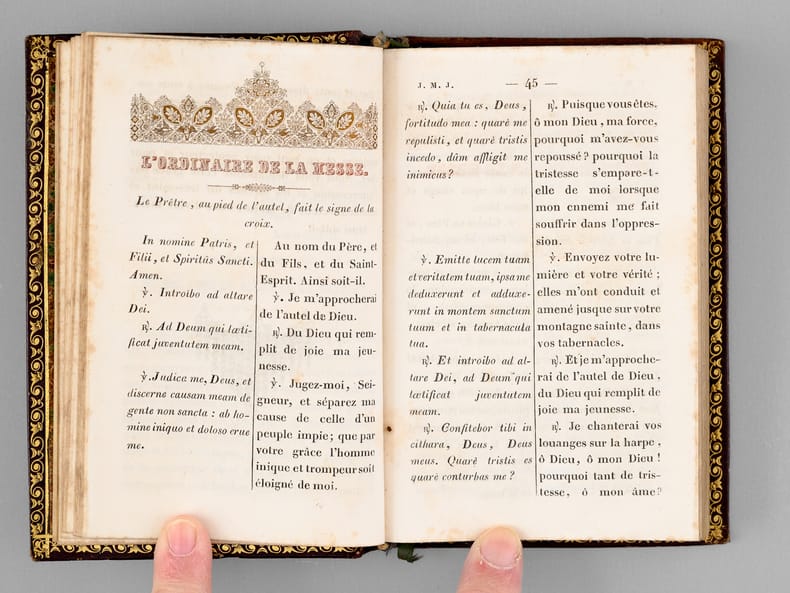 L'ORDINAIRE DE LA MESSE.
Le Prêtre, au pied de l'autel, fait le signe de la
croix.
In nomine Patris, et
Filii, et Spiritûs Sancti.
Amen.
℣. Introibo ad altare
Dei.
℟. Ad Deum qui læti-
ficat juventutem meam.
℣. Judica me, Deus, et
discerne causam meam de
gente non sancta : ab ho-
mine iniquo et doloso erue
me.
Au nom du Père, et
du Fils, et du Saint-
Esprit. Ainsi soit-il.
℣. Je m'approcherai
de l'autel de Dieu.
℟. Du Dieu qui rem-
plit de joie ma jeu-
nesse.
℣. Jugez-moi, Sei-
gneur, et séparez ma
cause de celle d'un
peuple impie; que par
votre grâce l'homme
inique et trompeur soit
éloigné de moi.
J. M. J. — 45 —
℟. Quia tu es, Deus,
fortitudo mea : quarè me
repulisti, et quarè tristis
incedo, dùm affligit me
inimicus?
℣. Emitte lucem tuam
et veritatem tuam, ipsa me
deduxerunt et adduxe-
runt in montem sanctum
tuum et in tabernacula
tua.
℟. Et introibo ad al-
tare Dei, ad Deum qui
lætificat juventutem
meam.
℟. Confitebor tibi in
citharâ, Deus, Deus
meus. Quarè tristis es
quarè conturbas me ?
℟. Puisque vous êtes,
ô mon Dieu, ma force,
pourquoi m'avez-vous
repoussé? pourquoi la
tristesse s'empare-t-
elle de moi lorsque
mon ennemi me fait
souffrir dans l'oppres-
sion.
℣. Envoyez votre lu-
mière et votre vérité ;
elles m'ont conduit et
amené jusque sur votre
montagne sainte, dans
vos tabernacles.
℟. Et je m'approche-
rai de l'autel de Dieu,
du Dieu qui remplit de
joie ma jeunesse.
℟. Je chanterai vos
louanges sur la harpe,
ô Dieu, ô mon Dieu !
pourquoi tant de tris-
tesse, ô mon âme?